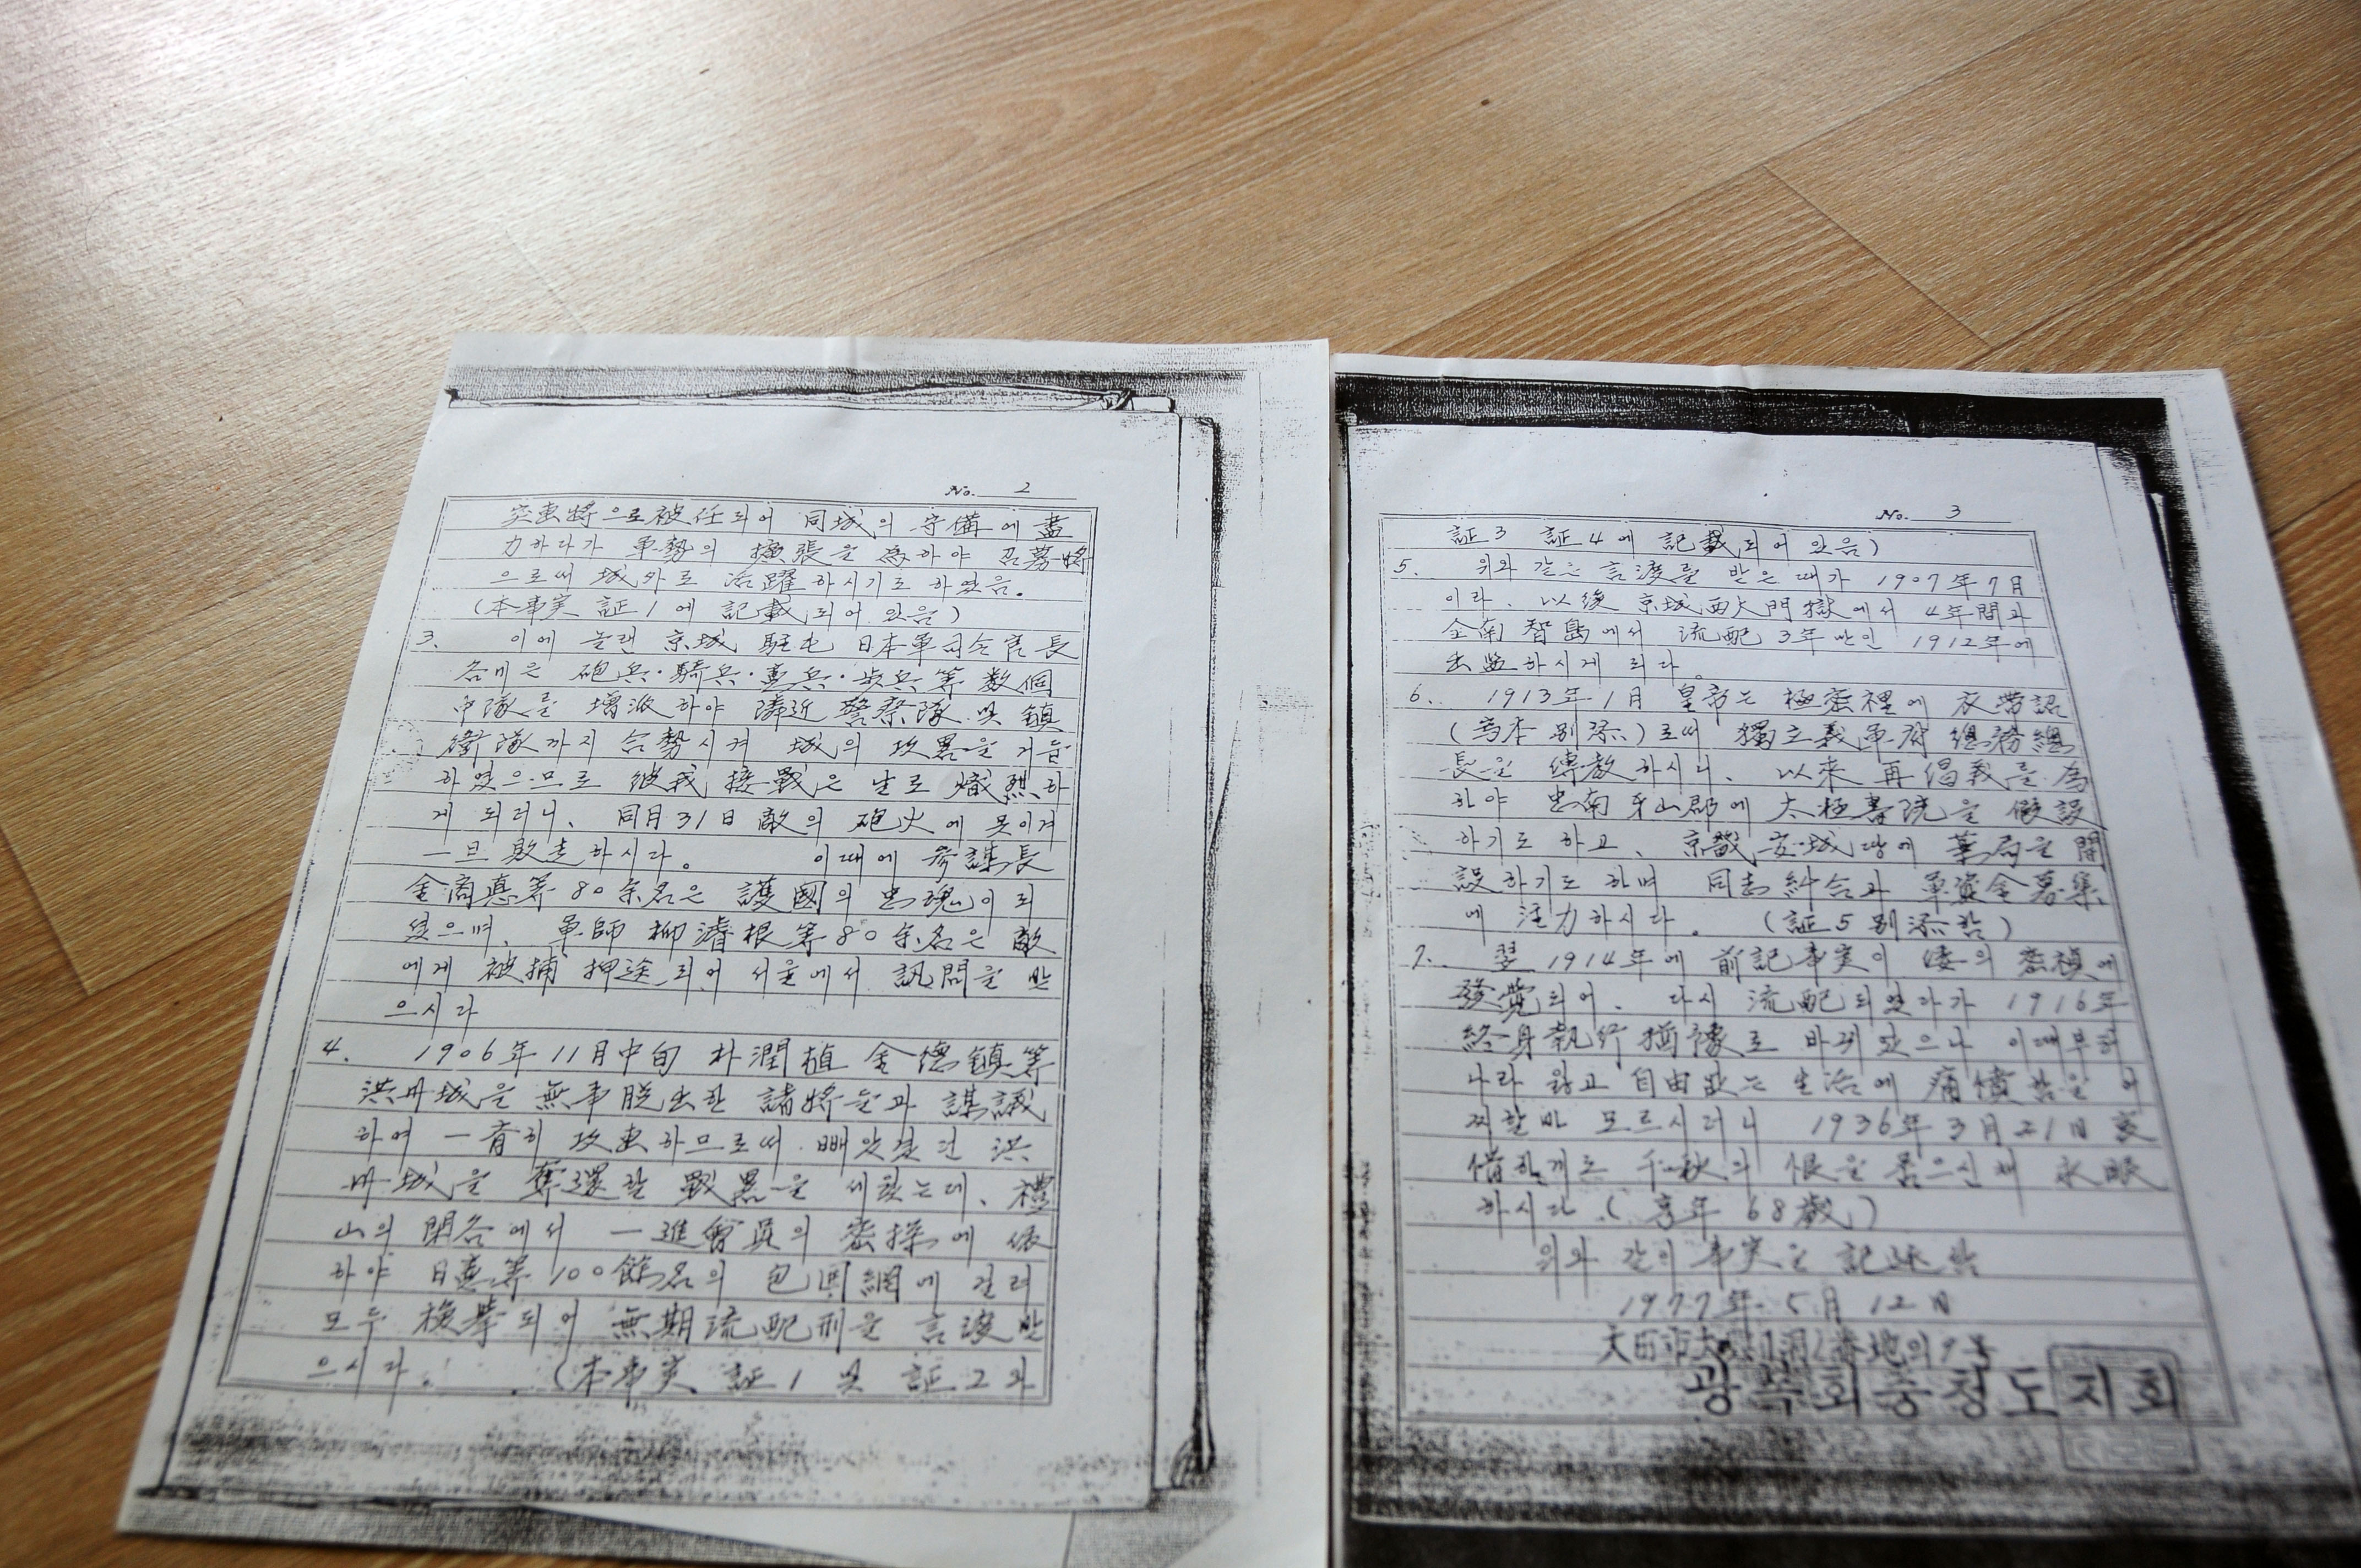 No. 2
突擊將으로 被任되어 同城의 守備에 盡
力하다가 軍勢의 擴張을 爲하야 召募將
으로써 城外로 活躍하시기도 하였음.
(本事実 証1에 記載되어 있음)
3. 이에 놀랜 京城 駐屯 日本軍司令官 長
谷川은 砲兵·騎兵·憲兵·步兵等 数個
中隊를 增派하야 隣近 警察隊 및 鎭
衛隊까지 合勢시켜 城의 攻畧을 거듭
하였으므로 彼我 接戰은 날로 熾烈하
게 되더니、 同月31日 敵의 砲火에 못이겨
一旦 敗走하시다。 이때에 參謀長
金商悳等 80余名은 護國의 忠魂이 되
었으며、 軍師 柳濬根等 80余名은 敵
에게 被捕 押送되어 서울에서 訊問을 받
으시다
4. 1906年 11月中旬 朴潤植 金德鎭等
洪州城을 無事脫出한 諸將들과 謀議
하여 一斉히 攻擊하므로써 빼았겼던 洪
州城을 奪還할 戰畧을 세웠는데、禮
山의 閑谷에서 一進會員의 密探에 依
하야 日憲等 100餘名의 包圍網에 걸려
모두 檢擧되어 無期流配刑을 言渡받
으시다。 (本事実 証1 및 証2와
No. 3
証3 証4에 記載되어 있음)
5. 위와 같은 言渡를 받은때가 1907年 7月
이라、以後 京城西大門獄에서 4年間과
全南 智島에서 流配 3年만인 1912年에
出監하시게 되다。
6. 1913年 1月 皇帝는 極密裡에 衣帶詔
(写本 別添)로써 獨立義軍府 總務總
長을 傳敎하시니、以來 再倡義를 爲
하야 忠南 牙山郡에 太極書院을 假設
하기도 하고、京畿 安城땅에 藥局을 開
設하기도 하며 同志糾合과 軍資金募集
에 注力하시다。 (証5 別添함)
7. 翌 1914年에 前記事実이 倭의 密偵에
發覺되어、 다시 流配되었다가 1916年
終身執行 猶豫로 바뀌었으나 이때부터
나라 잃고 自由없는 生活에 痛憤함을 어
찌할바 모르시더니 1936年 3月 21日 哀
惜하게도 千秋의 恨을 품으신채 永眠
하시다.(享年 68歲)
위와 같이 事実을 記述함
1977年 5月 12日
大田市大興1洞 番地의9号
광복회충청도지회